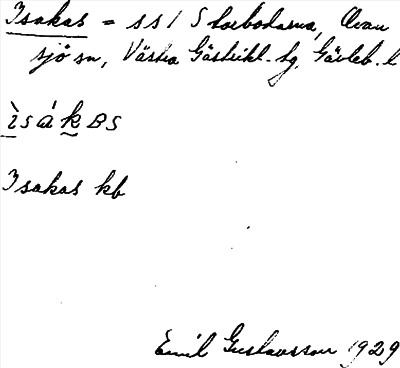 Isakas = ss/ Stoebodarna, Ovan
sjö sn, Västra Gästrikl. hg, Gävleb. l
ìsákBS
Isakas kb
Emil Gustavsson 1929